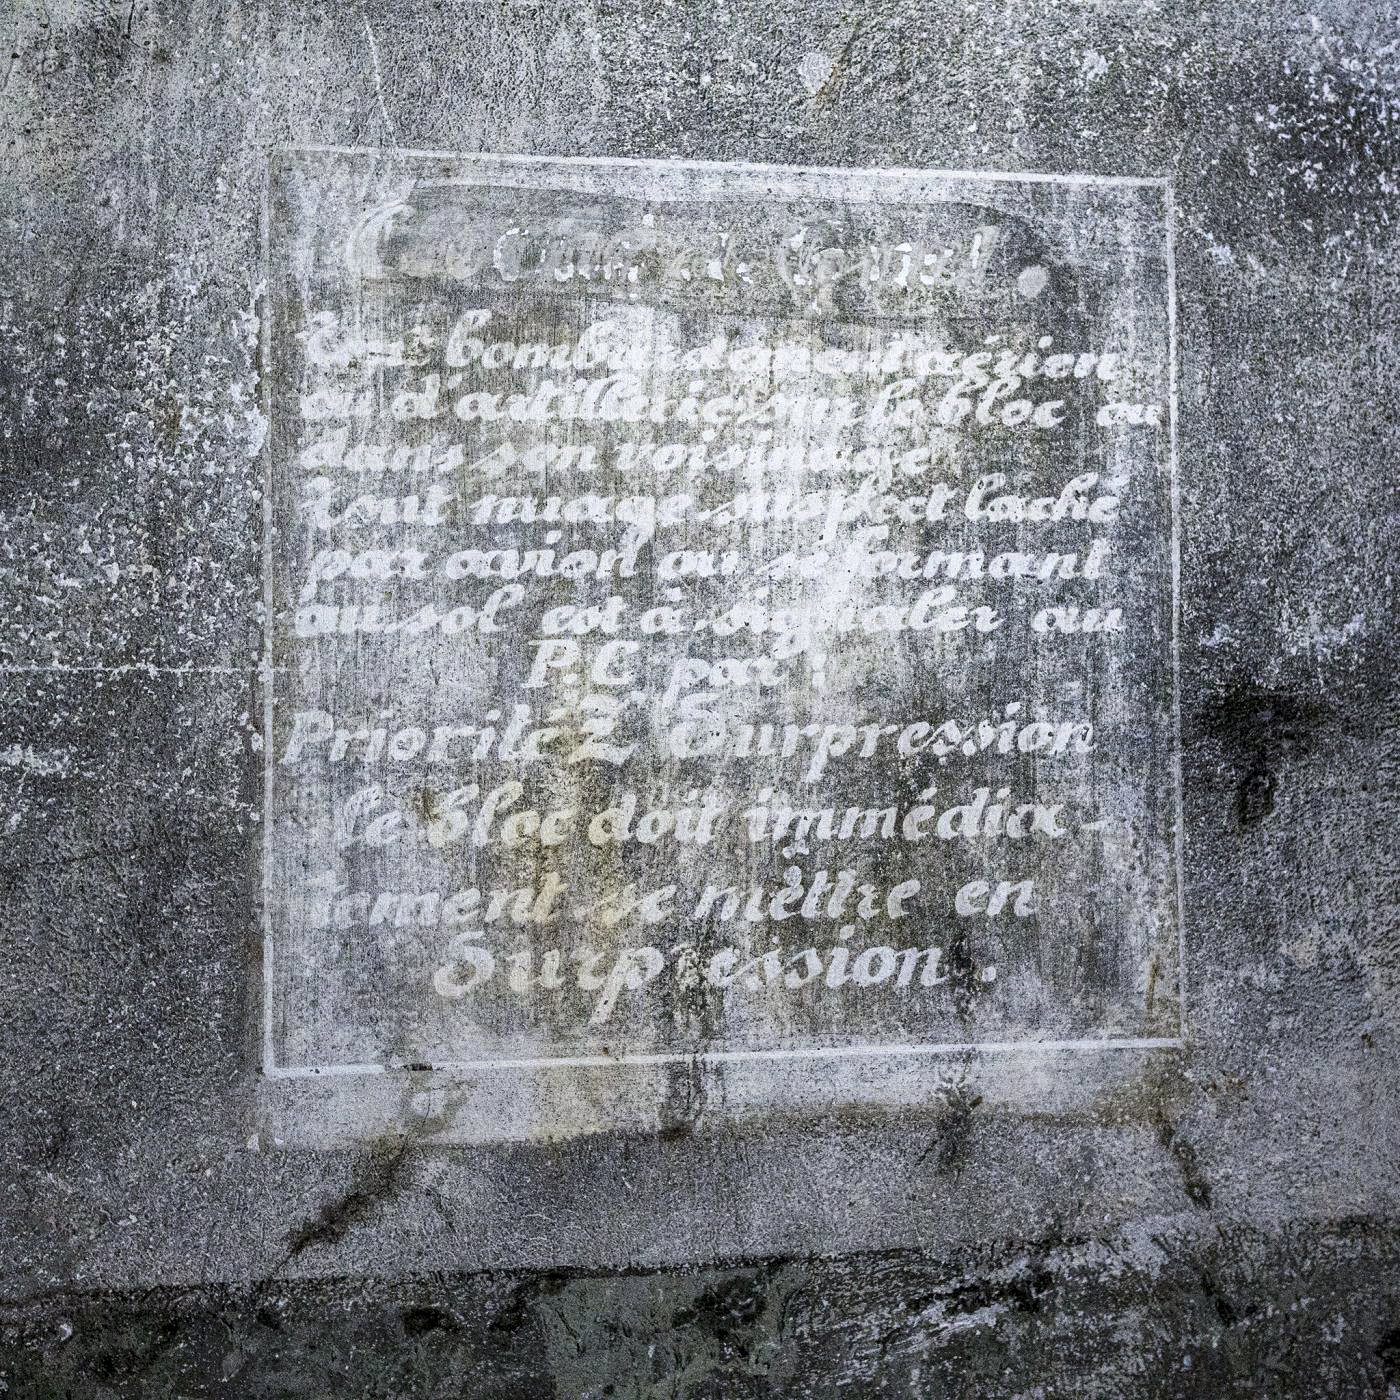 Tout bombardement aérien
ou d'artillerie sur le bloc ou
dans son voisinage
tout nuage suspect laché
par avion ou se formant
au sol est à signaler au
P.C par :
Priorité Z Surpression
le bloc doit immédia-
tement se mettre en
Surpression .